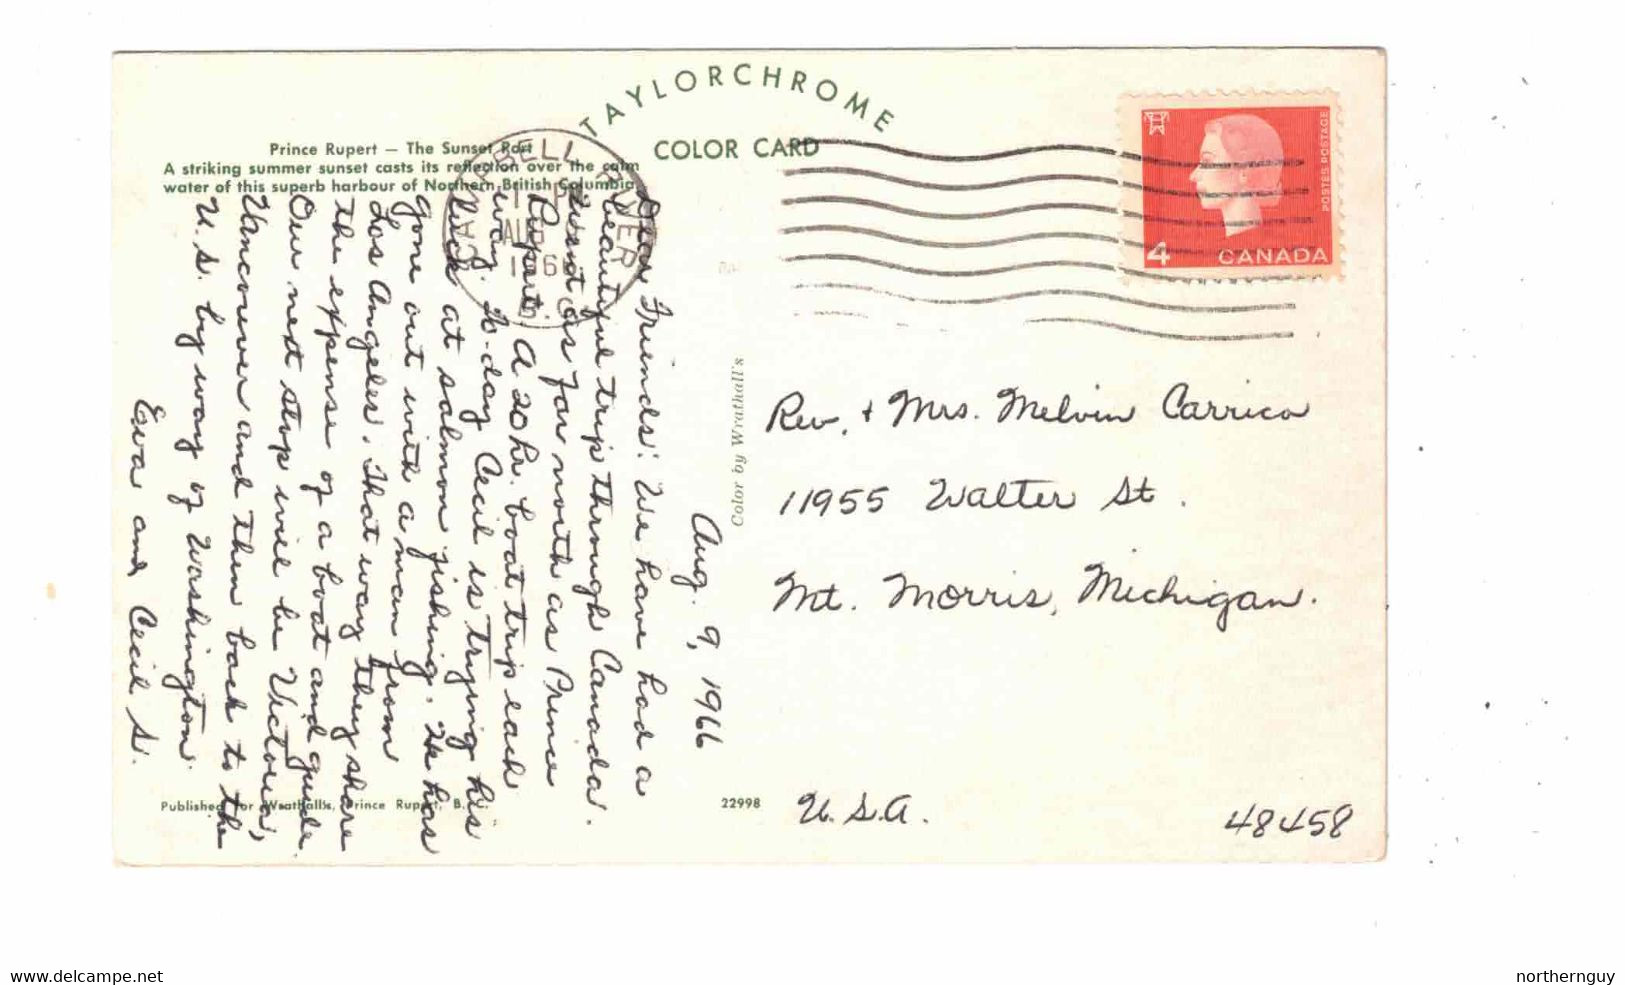 TAYLORCHROME
COLOR CARD
Prince Rupert — The Sunset Port
A striking summer sunset casts its reflection over the calm
water of this superb harbour of Northern British Columbia
CAMPBELL RIVER
PM
AUG
196
B.C.
4 CANADA
POSTES POSTAGE
Aug. 9, 1966
Dear Friends: We have had a
beautiful trip through Canada.
Went as far north as Prince
Rupert. A 20 hr. boat trip each
way. To-day Cecil is trying his
luck at salmon fishing. He has
gone out with a man from
Los Angeles. That way they share
the expense of a boat and guide.
Our next stop will be Victoria,
Vancouver and then back to the
U.S. by way of Washington.
Eva and Cecil S.
Color by Wrathall's
Rev. + Mrs. Melvin Carrico
11955 Walter St.
Mt. Morris, Michigan.
U.S.A.
48458
Published for Wrathall's, Prince Rupert, B. C.
22998
www.delcampe.net
northernguy